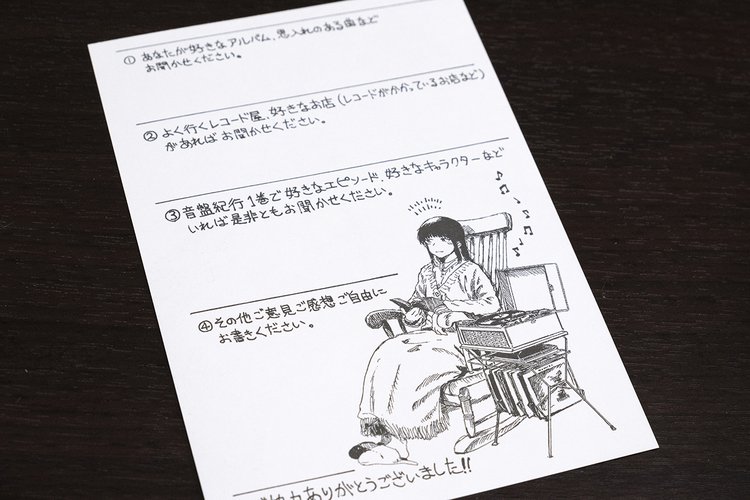 ① あなたが好きなアルバム、思入れのある曲など
お聞かせください。
② よく行くレコード屋、好きなお店(レコードがかかっているお店など)
があればお聞かせください。
③ 音盤紀行1巻で好きなエピソード、好きなキャラクターなど
いれば是非ともお聞かせください。
④ その他ご意見ご感想ご自由に
お書きください。
ありがとうございました!!